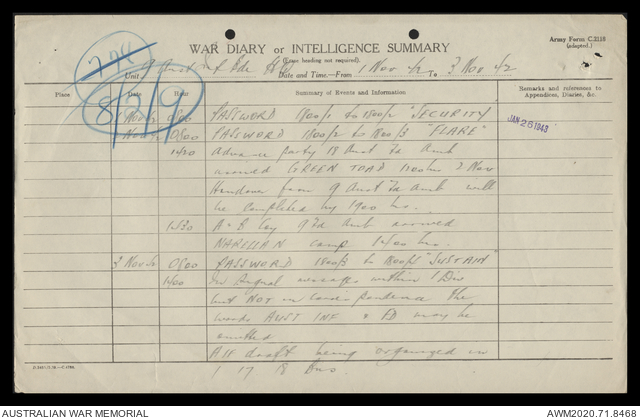 Army Form C.2118
(adapted.)
WAR DIARY or INTELLIGENCE SUMMARY
(Erase heading not required).
Unit 9 Aust Inf Bde HQ Date and Time—From 1 Nov 42 To 3 Nov 42
8/2/9
Place Date Hour Summary of Events and Information Remarks and references to Appendices, Diaries, &c.
1 Nov 42 0800 PASSWORD 1800/1 to 1800/2 "SECURITY"
JAN 26 1943
2 Nov 42 0800 PASSWORD 1800/2 to 1800/3 "FLARE"
1420 Advance party 18 Aust Fd Amb
arrived GREEN TOAD 1200 hrs 2 Nov
Handover from 9 Aust Fd Amb will
be completed by 1900 hrs.
1430 A & B Coy 9 Fd Amb arrived
NARELLAN camp 1400 hrs.
3 Nov 42 0800 PASSWORD 1800/3 to 1800/4 "SUSTAIN"
1400 In Signal messages within 1 Div
but NOT in correspondence the
words AUST INF & FD may be
omitted
AIF draft being organized in
1 17 18 Bns.
AUSTRALIAN WAR MEMORIAL
AWM2020.71.8468